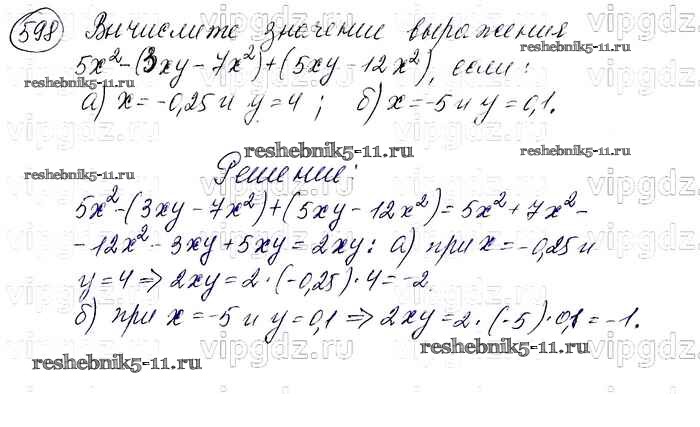 598 Вычислите значение выражения
5x²-(3xy-7x²)+(5xy-12x²), если:
а) x=-0,25 и y=4; б) x=-5 и y=0,1.
Решение:
5x²-(3xy-7x²)+(5xy-12x²)=5x²+7x²-
-12x²-3xy+5xy=2xy: а) при x=-0,25 и
y=4 ⇒ 2xy=2·(-0,25)·4=-2.
б) при x=-5 и y=0,1 ⇒ 2xy=2·(-5)·0,1=-1.
reshebnik5-11.ru
reshebnik5-11.ru
reshebnik5-11.ru
reshebnik5-11.ru
reshebnik5-11.ru
reshebnik5-11.ru
reshebnik5-11.ru
vipgdz.ru
vipgdz.ru
vipgdz.ru
vipgdz.ru